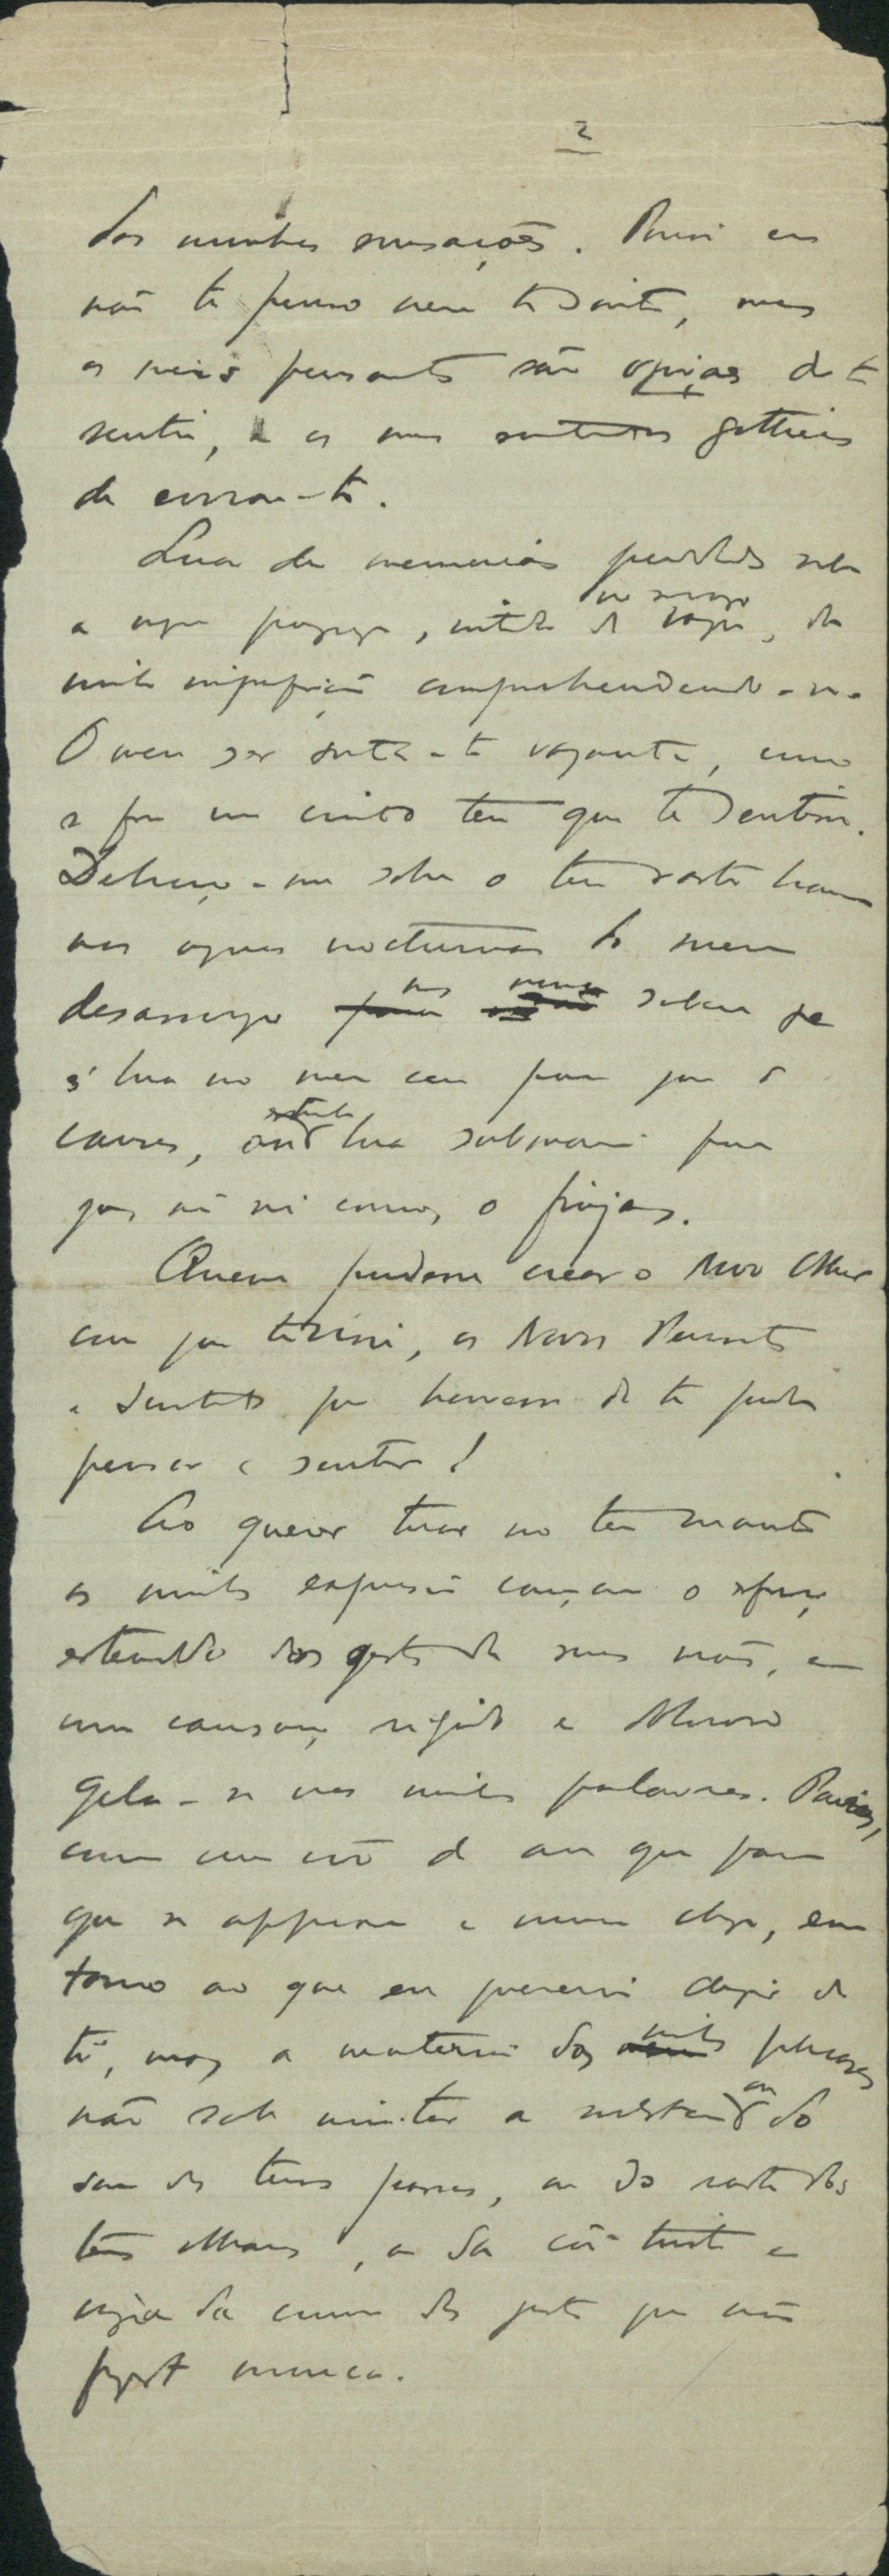 das minhas sensações. Porisso eu
não te penso nem te sinto, mas
os meus pensamentos são ogivas de te
sentir, e os meus sentimentos gothicos
de evocar-te.
Lua de memorias perdidas sobre
a negra paysagem, nitida de vazio, da
minha imperfeição comprehendendo-se.
O meu ser sente-te vagamente, como
se fosse um cinto teu que te sentisse.
Debruço-me sobre o teu rosto branco
nas aguas nocturnas do meu
desassocego mas nunca saberei se
és lua no meu ceu para que o
causes, ou estranha lua submarina para
que, não sei como, o finjas.
Quem pudesse crear o Novo Olhar
com que te visse, os Novos Pensamentos
e Sentimentos que houvessem de te poder
pensar e sentir!
Ao querer tocar no teu manto
as minhas expressões cançam o esforço
estendido dos gestos de suas mãos, e
um cansaço rigido e doloroso
gela-se nas minhas palavras. Porisso,
curva um vôo de ave que parece
que se approxima e nunca chega, em
torno ao que eu quereria dizer de
ti, mas a materia das minhas phrases
não sabe imitar a substancia ou do
som dos teus passos, ou do rasto dos
teus olhares, ou da côr triste e
vazia da curva dos gestos que não
fizeste nunca.